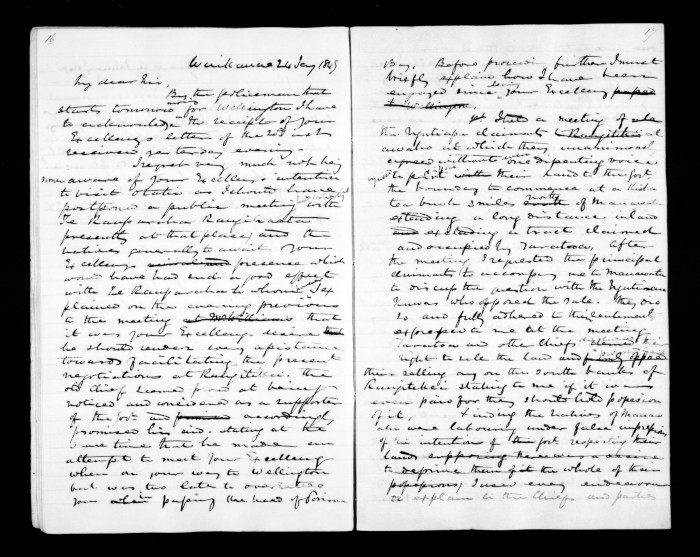 16
Waikanae 24 Jany 1849
My dear Sir,
By the policeman that
starts tomorrow morng for Wellington I have
to acknowledge the receipt of your
Excellency's letter of the 22d inst
received yesterday evening.
I regret very much not being
aware of your Excellency's intention
to visit Otaki as I should have
postponed a public meeting with
Te Rauparaha Rangihaeata
present, at that place, and the
natives generally to await your
Excellency presence which
would have had such a good effect
with Te Rauparaha to whom I ex
plained on the evening previous
to the meeting that
it was your Excellency desire
he should render every assistance
towards facilitating the present
negotiations at Rangitikei. The
old Chief seemed proud at being
noticed and considered as a supporter
of the Govt and accordingly
promised his aid. stating at the
same time that he made an
attempt to meet your Excellency
when on your way to Wellington
but was too late to overtake
you when passing the head of Porirua
17
Bay. Before proceeding further I must
briefly explain how I have been
engaged since seeing your Excellency
to Wellington.
1st a meeting of all
the Ngatiapa claimants to Rangitikei at
awahou at which they unanimously
agreed without one dissenting voice
to sell their land to the Govt.
the boundary to commence at
3 miles north of Manawatu
extending a long distance inland
and excluding a tract claimed
and occupied by Taratoa. After
the meeting I requested the principal
claimants to accompany me to Manawatu
to discuss the question with the Ngatirau
kawas who opposed the sale. They did
so and fully adhered to the sentiments
expressed to me at the meeting
Taratoa and other Chiefs denied their
right to sell the land and
their selling any on the south bank of
Rangitikei stating to me if it was
even paid for they should hold possession
of it. Finding the Natives of Manawa
tu were labouring under false impressions
of the intention of the Govt. respecting their
lands supposing there was a desire
to deprive them of the whole of their
possessions, I used every endeavour
to explain to the Chiefs and parties